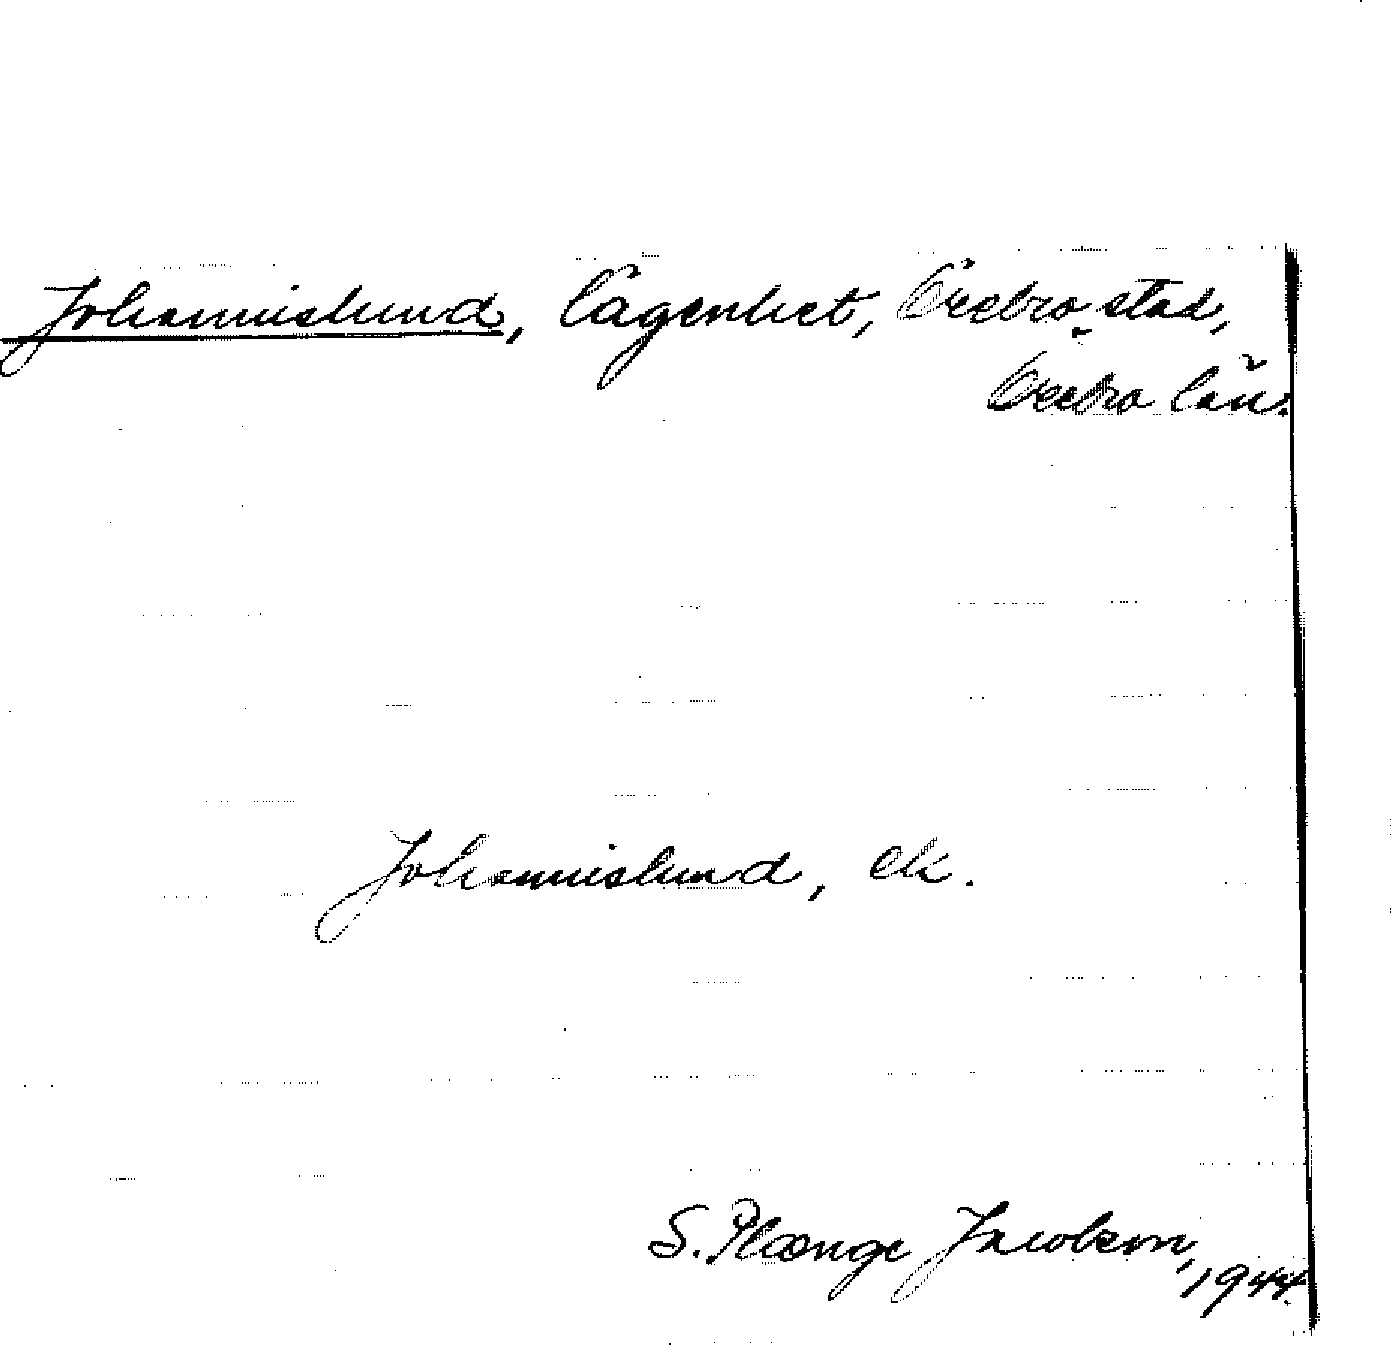 Johannislund, lägenhet, Örebro stad,
Örebro län.
Johannislund, ek.
S. Plænge Jacobson,
1944.